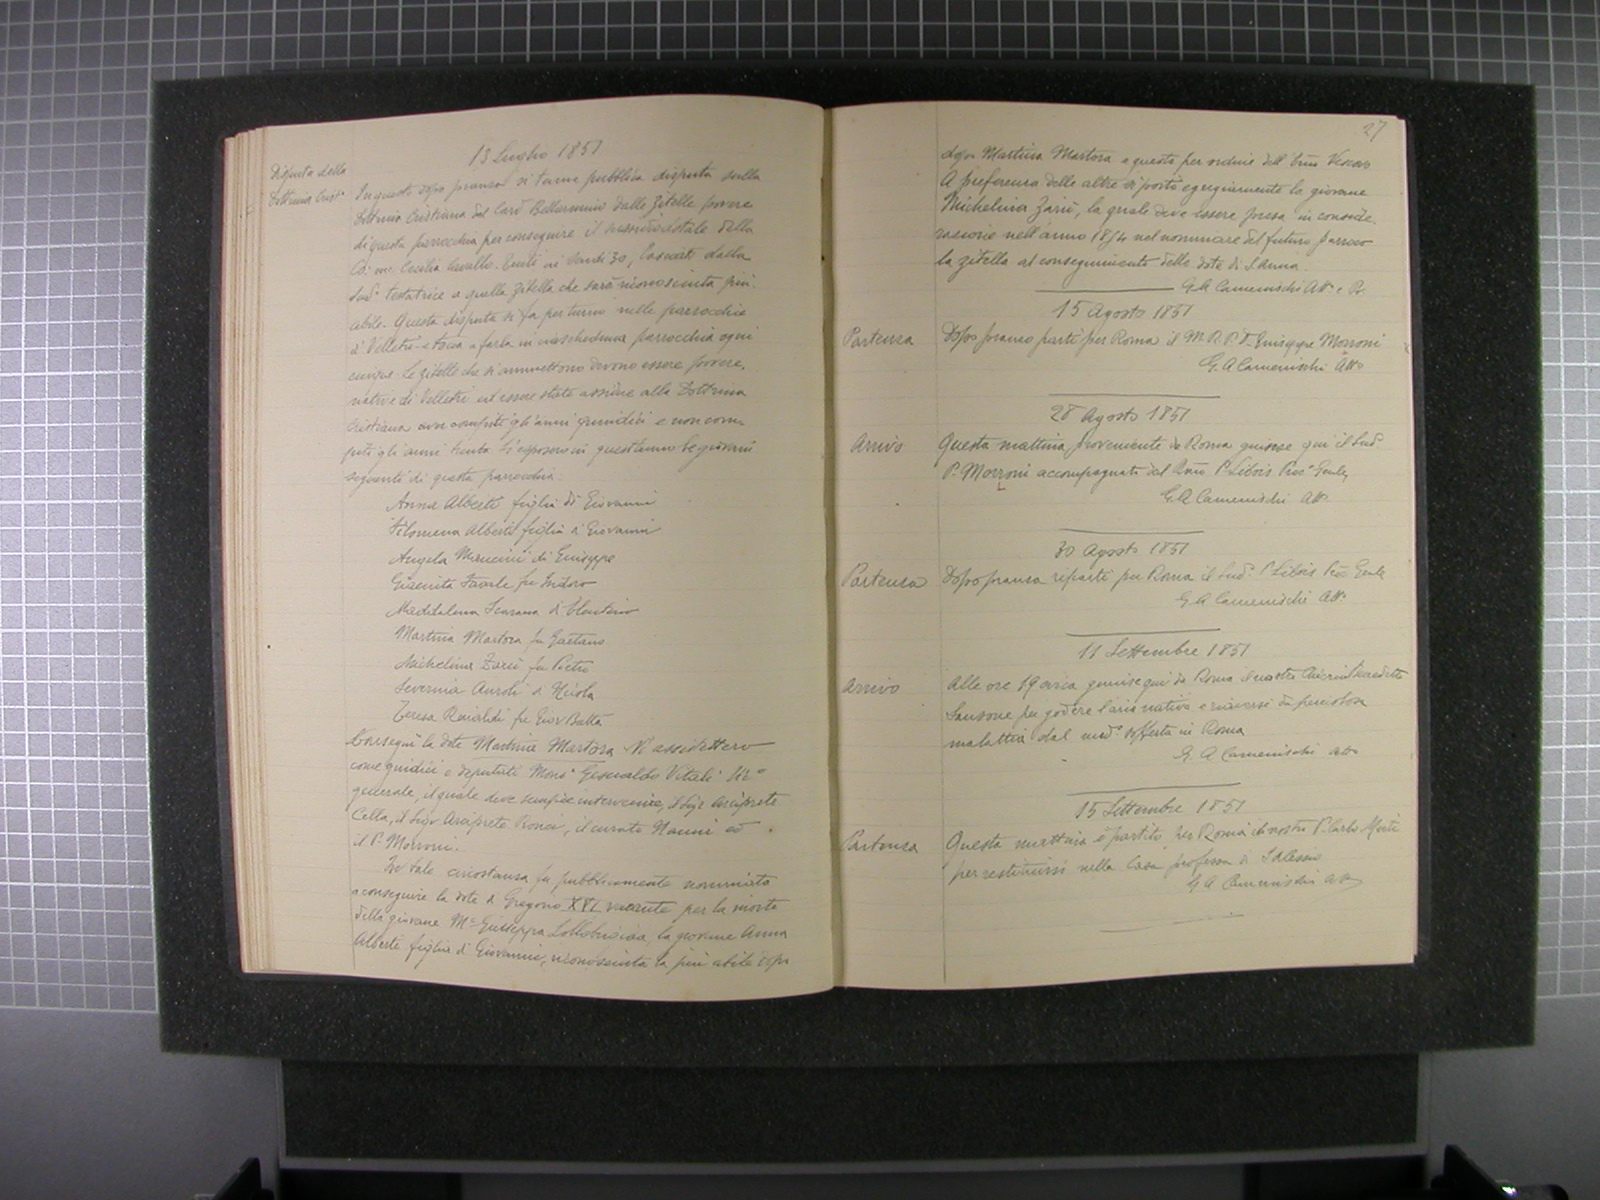 13 Luglio 1851
Disputa della
Dottrina Crist.
In questo dopo pranzo si tenne pubblica disputa sulla
Dottrina Cristiana del Card Bellarmino dalle Zitelle povere
di questa parrocchia per conseguire il sussidio dotale della
Cecilia scudi 30, lasciato dalla
testatrice a quella Zitella che sarà riconosciuta più
abile. Questa disputa si fa per turno nelle parrocchie
di Velletri e tocca a farla in ciascheduna parrocchia ogni
cinque. Le Zitelle che si ammettono devono essere povere,
native di Velletri ed essere state assidue alla Dottrina
Cristiana aver compiti gli anni quindici e non com
piti gli anni trenta. Si esposero in quest'anno le giovani
seguenti di questa parrocchia.
Anna Alberti figlia di Giovanni
Filomena Alberti figlia di Giovanni
Angela Mancini di Giuseppe
fu Isidoro
Maddalena
Martina Martora fu Gaetano
Michelina Zarù fu Pietro
Severina Auroli di Nicola
Teresa Rinaldi fu Giov Batta
Conseguì la dote Martina Martora. Vi assistettero
come giudici e deputati Mons. Gesualdo Vitali Vic.
generale, il quale deve sempre intervenire, il Sigr Arciprete
Cella, il Sigr Arciprete Ronci, il curato Nanni ed
il P. Morroni.
In tale circostanza fu pubblicamente nominata
a conseguire la dote di Gregorio XVI vacante per la morte
della giovane Mª Giuseppa Lollobrigida, la giovane Anna
Alberti figlia di Giovanni, riconosciuta la più abile dopo
27
dopo Martina Martora e questo per ordine dell'
A preferenza delle altre si portò egregiamente la giovane
Michelina Zarù, la quale deve essere presa in conside
razione nell'anno nel nominare dal futuro parroco
la zitella al conseguimento delle dote di S Anna.
G. A. Camenischi Att. e Pr.
15 Agosto 1851
Partenza
Dopo pranzo partì per Roma il M. R. P. D. Giuseppe Morroni
G. A Camenischi Att.
28 Agosto 1851
Arrivo
Questa mattina proveniente da Roma giunse qui il Sud.
P. Morroni accompagnato dal Rmo P. Libois Proc. Genle
G. A Camenischi Att.
30 Agosto 1851
Partenza
Dopo pranzo ripartì per Roma il Sud. P Libois Proc Genle
G. A Camenischi Att.
11 Settembre 1851
Arrivo
Alle ore 19 circa giunse qui da Roma il nostro Chierico Benedetto
Sansone per godere l'aria nativa e riaversi da pericolosa
malattia dal med. sofferta in Roma
G. A Camenischi Att.
15 Settembre 1851
Partenza
Questa mattina è partito per Roma il nostro P. Carlo
per restituirsi nella Casa professa di S Alessio
G A Camenischi Att.